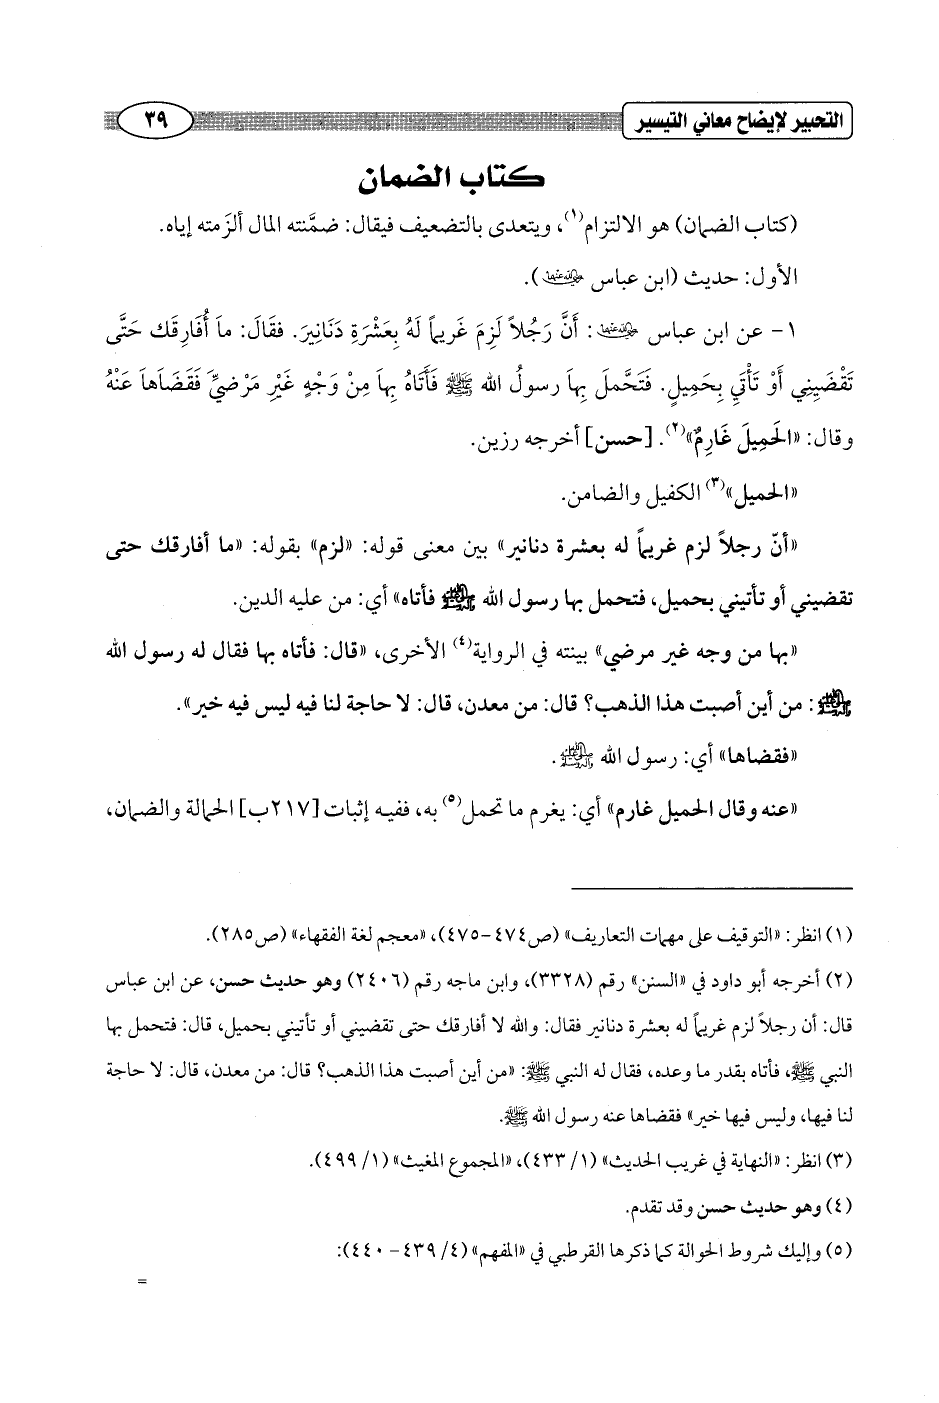 التحبير لإيضاح معاني التيسير ٣٩
كتاب الضمان
(كتاب الضمان) هو الالتزام(١)، ويتعدى بالتضعيف فيقال: ضمَّنته المال ألزَمته إياه.
الأول: حديث (ابن عباس رضي الله عنهما).
١- عن ابن عباس رضي الله عنهما: أَنَّ رَجُلاً لَزِمَ غَرِيماً لَهُ بِعَشْرَةِ دَنَانِيرَ. فقَالَ: ماَ أُفَارِقَك حَتَّى
تَقْضَيِنِي أَوْ تَأْتِي بِحَمِيلٍ. فَتَحَّمل بِهاَ رسولُ الله ﷺ فَأَتَاهُ بِهاَ مِنْ وَجْهٍ غَيْرِ مَرْضيٍّ فَقَضَاهاَ عَنْهُ
وقال: «الحَمِيلَ غَارِمٌ»(٢). [حسن] أخرجه رزين.
«الحميل»(٣) الكفيل والضامن.
«أنّ رجلاً لزم غريماً له بعشرة دنانير» بين معنى قوله: «لزم» بقوله: «ما أفارقك حتى
تقضيني أو تأتيني بحميل، فتحمل بها رسول الله ﷺ فأتاه» أي: من عليه الدين.
«بها من وجه غير مرضي» بينته في الرواية(٤) الأخرى، «قال: فأتاه بها فقال له رسول الله
ﷺ: من أين أصبت هذا الذهب؟ قال: من معدن، قال: لا حاجة لنا فيه ليس فيه خير».
«فقضاها» أي: رسول الله ﷺ.
«عنه وقال الحميل غارم» أي: يغرم ما تحمل(٥) به، ففيه إثبات [٢١٧ب] الحمالة والضمان،
(١) انظر: «التوقيف على مهمات التعاريف» (ص٤٧٤-٤٧٥)، «معجم لغة الفقهاء» (ص٢٨٥).
(٢) أخرجه أبو داود في «السنن» رقم (٣٣٢٨)، وابن ماجه رقم (٢٤٠٦) وهو حديث حسن، عن ابن عباس
قال: أن رجلاً لزم غريماً له بعشرة دنانير فقال: والله لا أفارقك حتى تقضيني أو تأتيني بحميل، قال: فتحمل بها
النبي ﷺ، فأتاه بقدر ما وعده، فقال له النبي ﷺ: «من أين أصبت هذا الذهب؟ قال: من معدن، قال: لا حاجة
لنا فيها، وليس فيها خير» فقضاها عنه رسول الله ﷺ.
(٣) انظر: «النهاية في غريب الحديث» (١/ ٤٣٣)، «المجموع المغيث» (١/ ٤٩٩).
(٤) وهو حديث حسن وقد تقدم.
(٥) وإليك شروط الحوالة كما ذكرها القرطبي في «المفهم» (٤/ ٤٣٩- ٤٤٠):
=